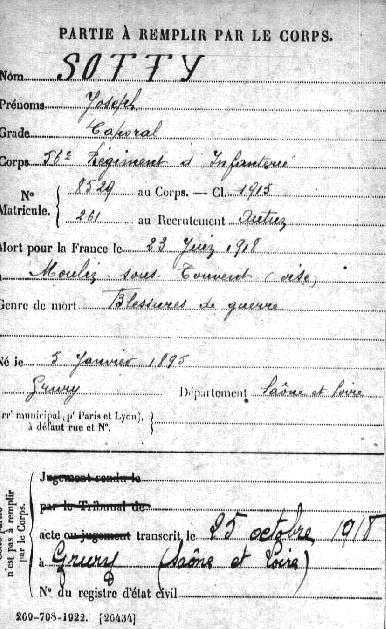 PARTIE À REMPLIR PAR LE CORPS.
Nom SOTTY
Prénoms Joseph
Grade Caporal
Corps 56e Régiment d'Infanterie
N° Matricule. { 8529 au Corps. — Cl. 1915
261 au Recrutement Autun
Mort pour la France le 23 1918
à Moulin sous Touvent (oise)
Genre de mort Blessures de guerre
Né le 5 Janvier 1895
Grury Département Saône et Loire
arrt municipal, (pr Paris et Lyon), à défaut rue et N°. }
n'est pas à remplir par le Corps.
Jugement rendu le
par le Tribunal de
acte ou jugement transcrit le 25 octobre 1918
à Grury (Saône et Loire)
N° du registre d'état civil
269-708-1922. [26434]